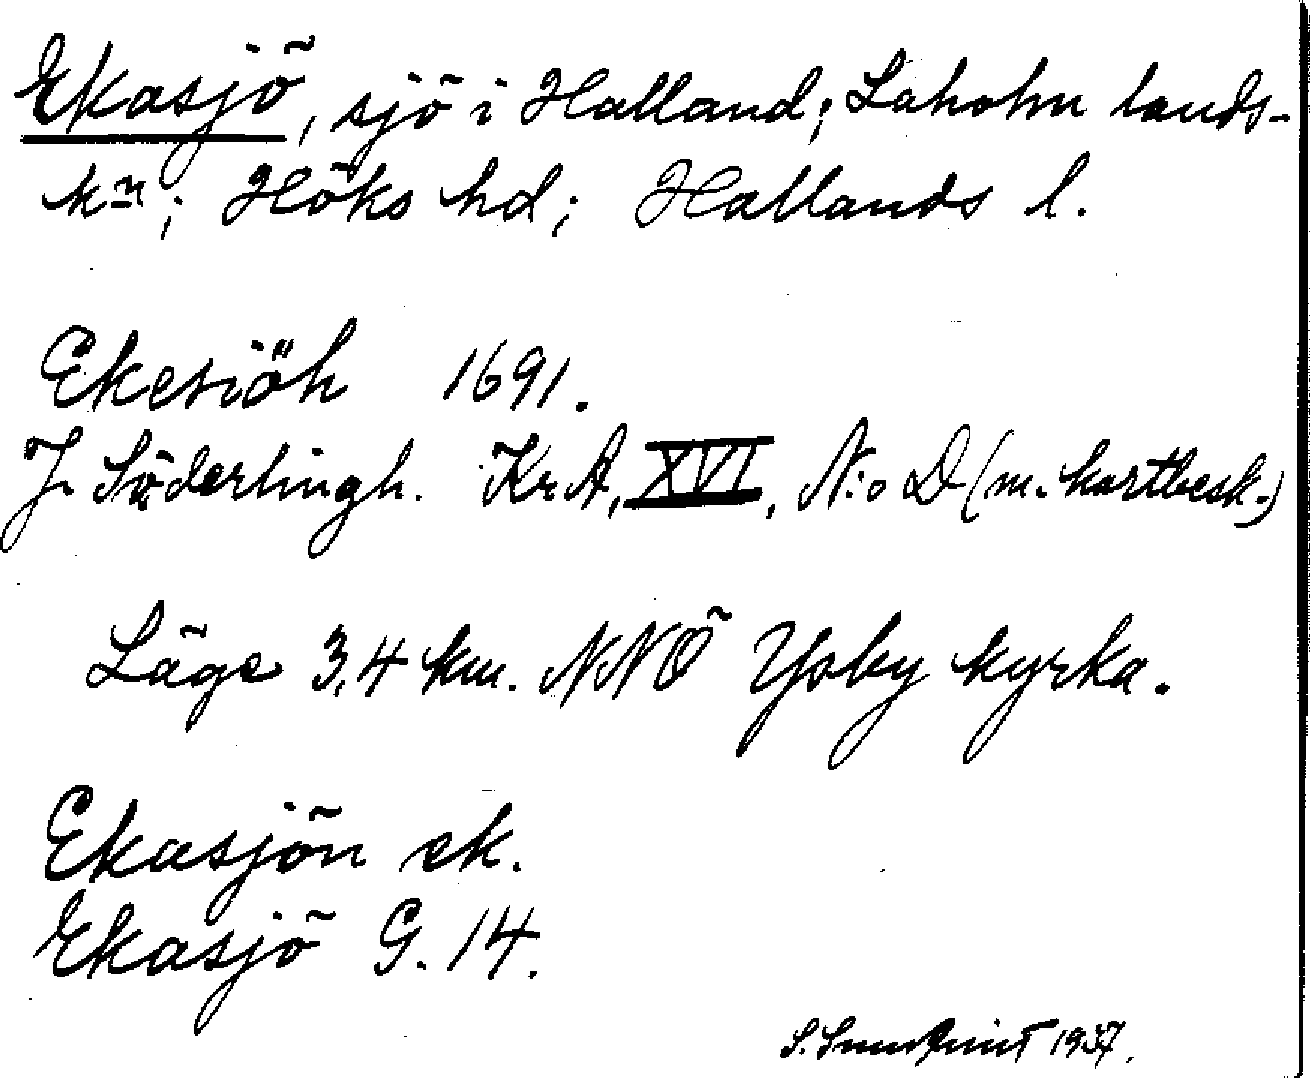 Ekasjö, sjö i Halland; Laholm lands-
kn; Höks hd; Hallands l.
Ekesiöh 1691.
J. Söderlingh. Kr.A, XVI, N:o D (m. kartbesk.)
Läge 3,4 km. NNÖ Ysby kyrka.
Ekasjön ek.
Ekasjö G. 14.
S. 1937.